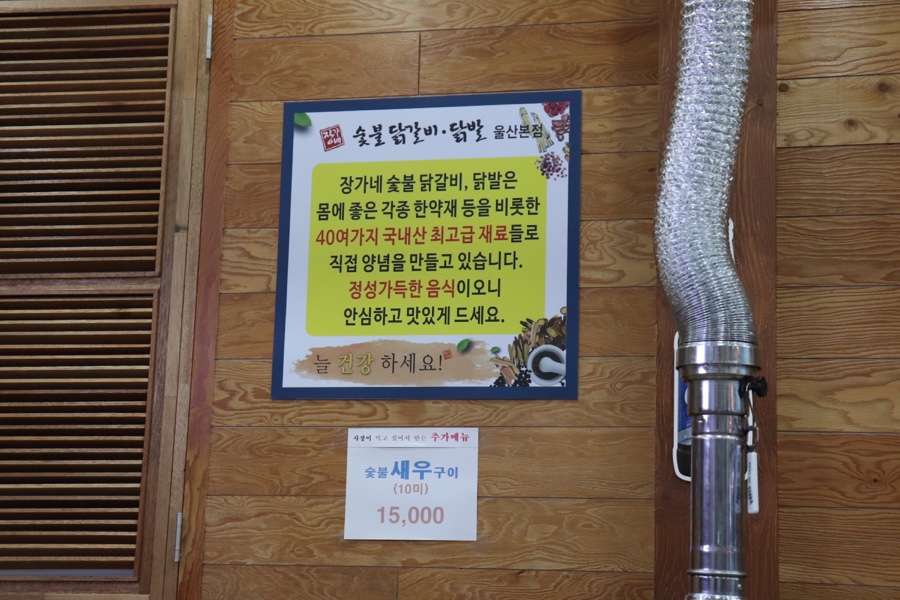 장가
이네
숯불 닭갈비·닭발 울산본점
장가네 숯불 닭갈비, 닭발은
몸에 좋은 각종 한약재 등을 비롯한
40여가지 국내산 최고급 재료들로
직접 양념을 만들고 있습니다.
정성가득한 음식이오니
안심하고 맛있게 드세요.
늘 건강 하세요!
사장이 먹고 싶어서 만든 추가메뉴
숯불 새우구이
(10미)
15,000